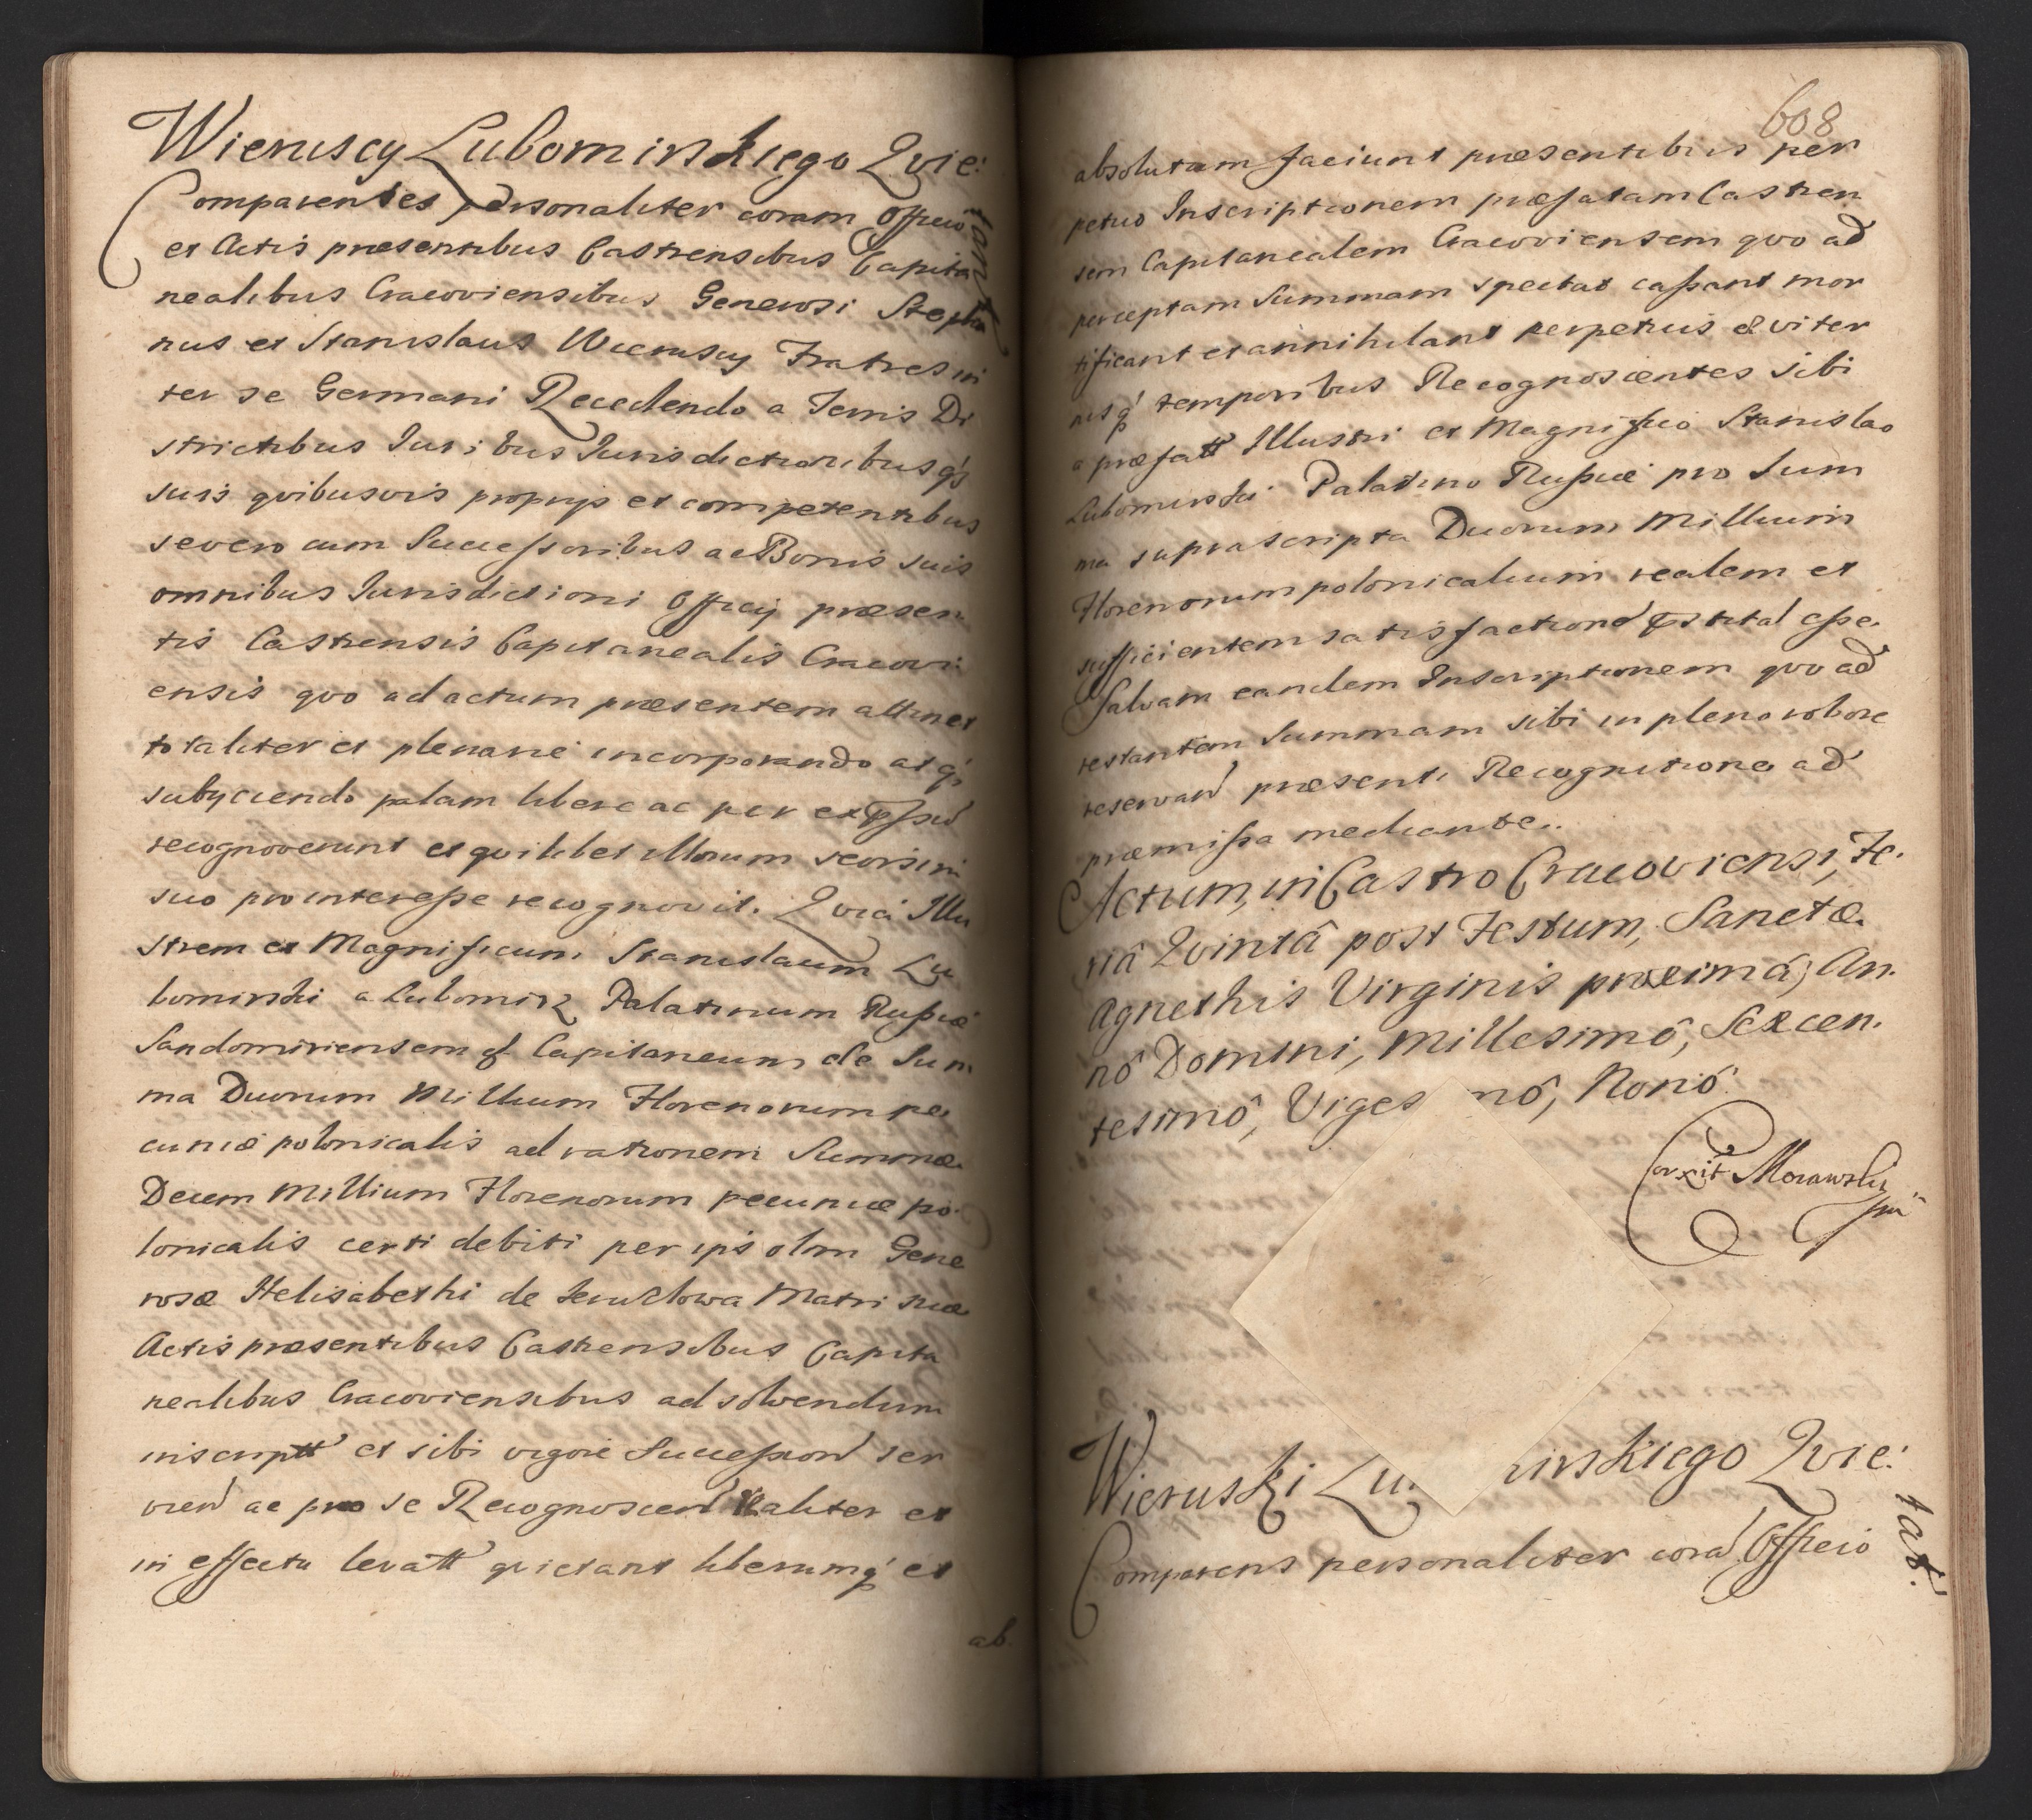 Wieruscy Lubomirskiego Qvie:
tant
Comparentes personaliter coram Officio
et Actis præsentibus Castrensibus Capita
nealibus Cracoviensibus Generosi Stepha
nus et Stanislaus Wieruscy Fratres in
ter se Germani Recedendo a Terris Di
strictibus Juribus Jurisdictionibusq́;
suis qvibusvis proprijs et competentibus
seveo cum Successoribus ac Bonis suis
omnibus Jurisdictioni Officij præsen
tis Castrensis Capitanealis Cracovi
ensis qvo ad actum præsentem attinet
totaliter et plenarie incorporando atq́;
subyciendo palam libere ac per exp̄ssū
recognoverunt et qvilibet illorum seorsim
suo pro interesse recognovit. Qvia Illu
strem et Magnificum Stanislaum Lu
bomirski a Lubomirz Palatinum Russiæ
Sandomiriensem & Capitaneum de Sum
ma Duorum Millium Florenorum pe
cuniæ polonicalis ad rationem Summæ
Decem Millium Florenorum pecuniæ po
lonicalis certi debiti per ips olim Gene
rosæ Helisabethi de Matri suæ
Actis præsentibus Castrensibus Capita
nealibus Cracoviensibus ad solvendum
inscriptt et sibi vigore Successioñ ser
vieñ ac pro se Recognosceñ realiter et
in effectu levatt qvietant liberumq́; et
ab.
608
absolutum faciunt præsentibus per
petuo Inscriptionem præfatam Castren
sem Capitanealem Cracoviensem qvo ad
perceptam Summam spectat cassant mor
tificant et annihilant perpetuis æviter
nisq́; temporibus Recognoscentes sibi
a præfatt Illustri et Magnifico Stanislao
Lubomirski Palatino Russiæ pro Sum
ma suprascripta Duorum Millium
Florenorum polonicalium realem et
sufficientem satisfactionē p̄stital esse.
Salvam eandem Inscriptionem qvo ad
restantem Summam sibi in pleno robore
reservañ præsenti Recognitione ad
præmissa mediante.
Actum, in Castro Cracoviensi, Fe.
riâ Qvintâ post Festum, Sanctæ.
Agnethis Virginis proximâ, An.
nô Domini, Millesimô, Sexcen.
tesimô, Viges nô, Nonô.
Corxit Morawski
mp
Wieruski Lu. irskiego Qvie:
tat.
Comparens personaliter corā Officio